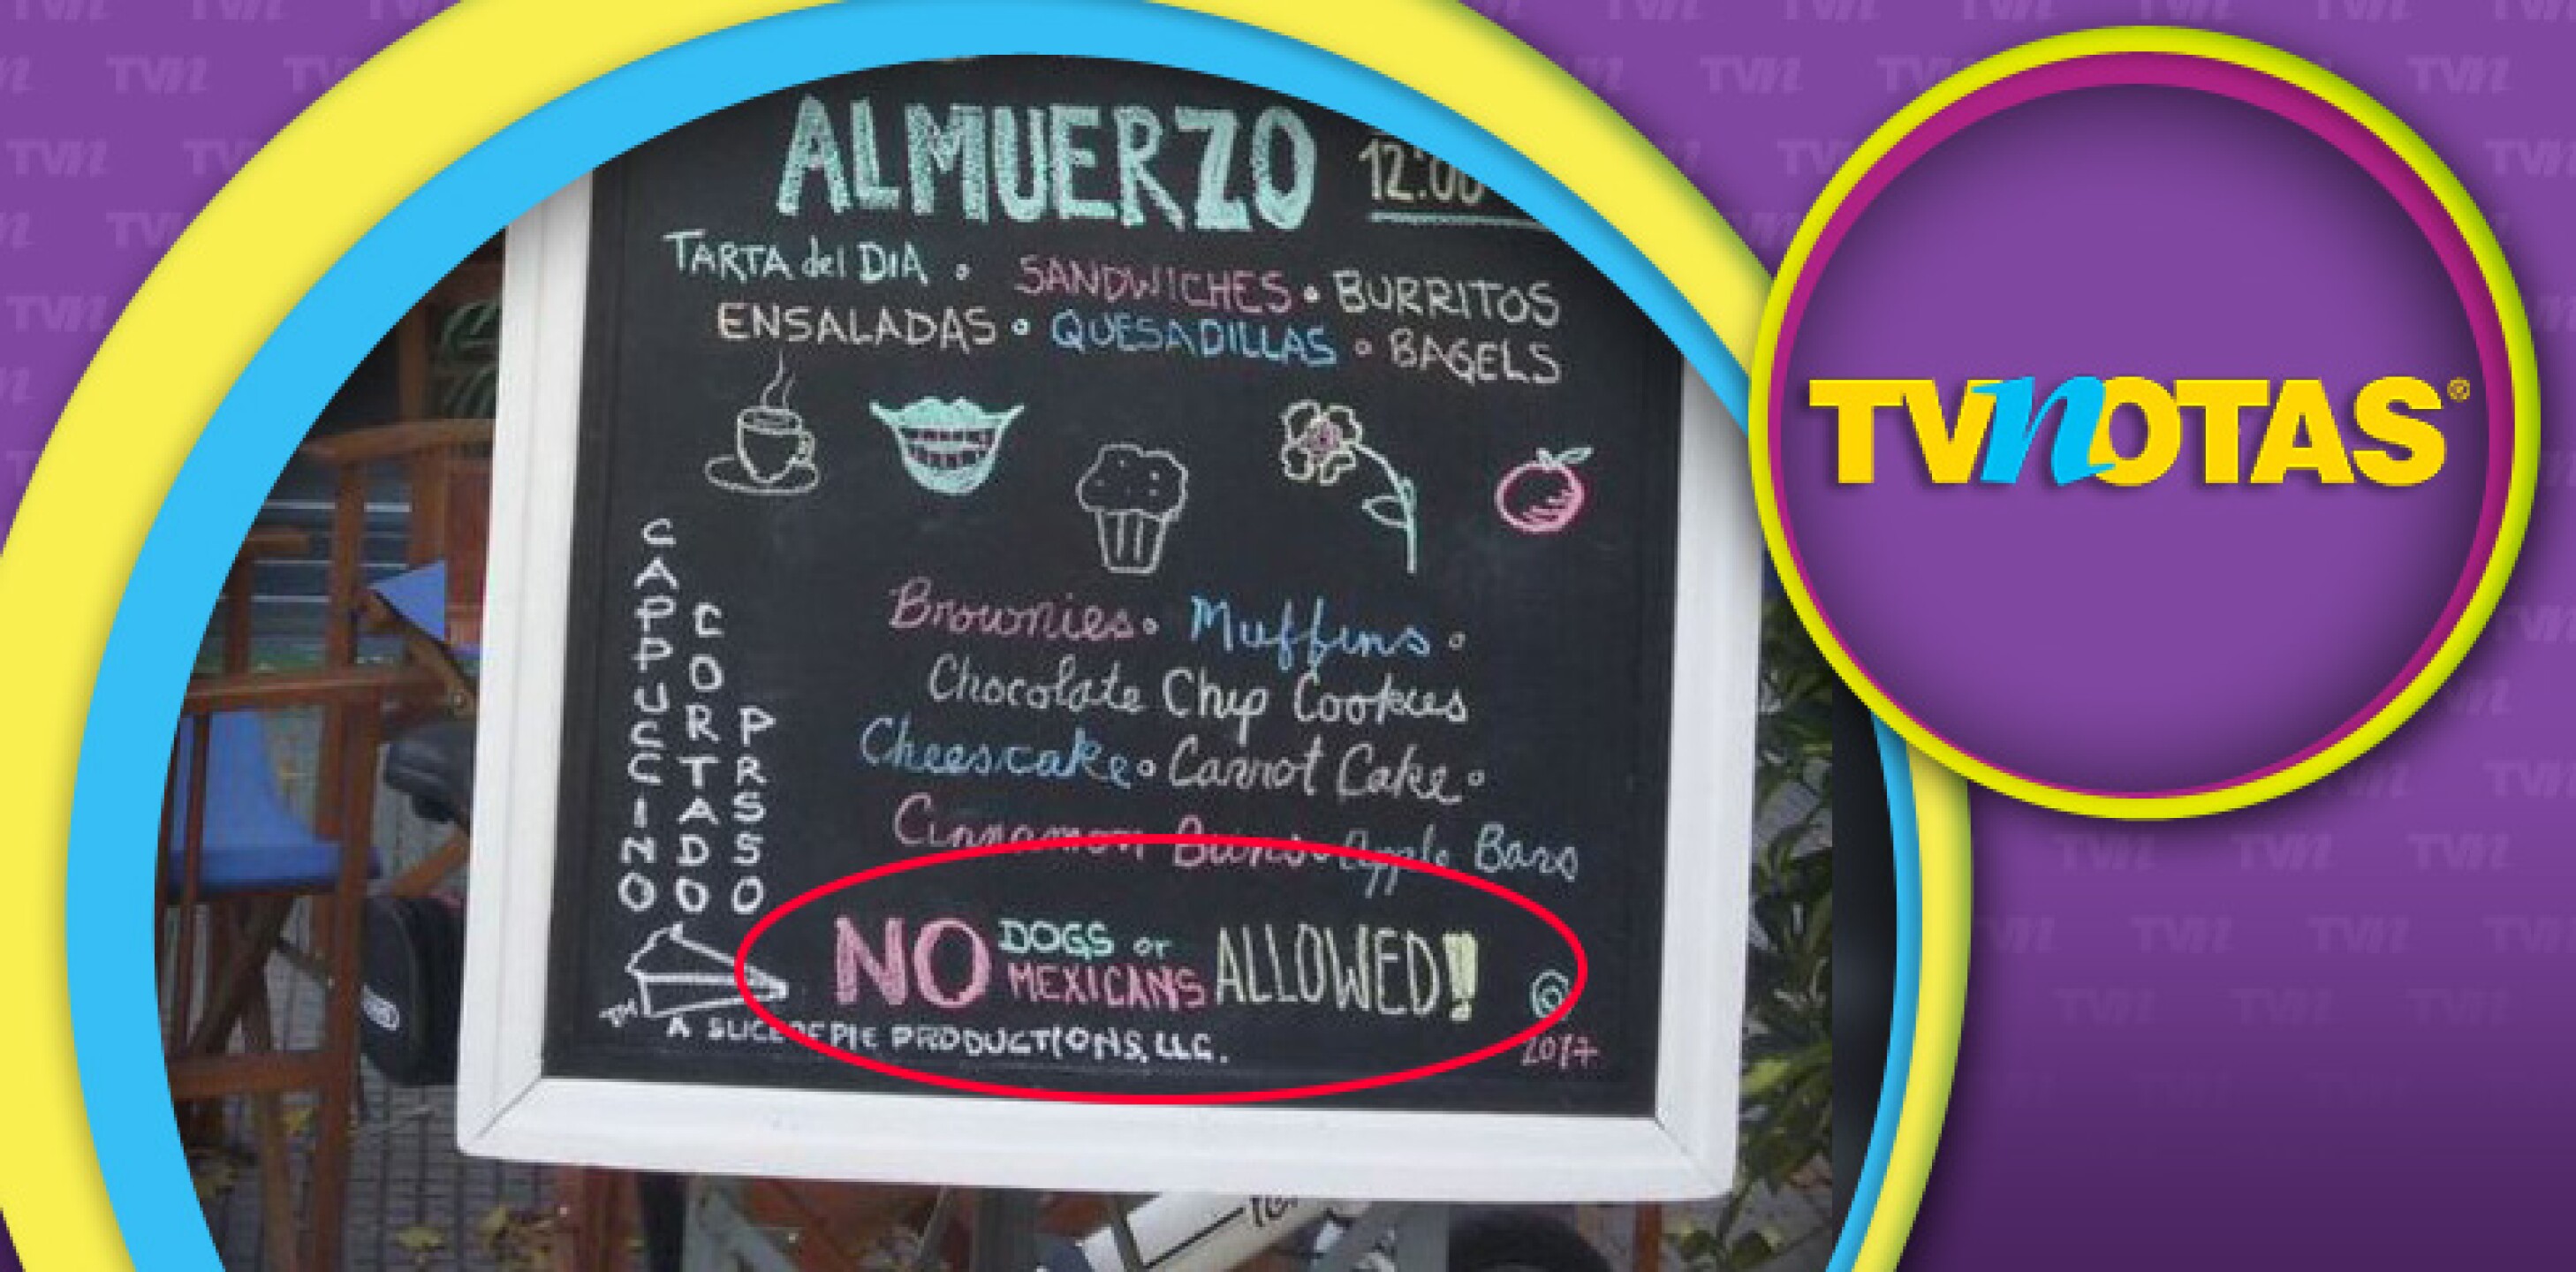 ALMUERZO 12:00
TARTA del DIA • SANDWICHES • BURRITOS
ENSALADAS • QUESADILLAS • BAGELS
CAPPUCCINO
CORTADO
PRSSO
Brownies • Muffins •
Chocolate Chip Cookies
Cheescake • Carrot Cake •
Cinnamon Buns • Apple Bars
NO DOGS or MEXICANS ALLOWED!!
TM
A SLICE OF PIE PRODUCTIONS, LLC.
2017
TVnOTAS®